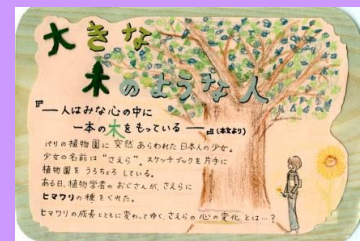 大きな
木のような人
『――人はみな心の中に
一本の木をもっている――』(本文より)
パリの植物園に突然あらわれた日本人の少女。
少女の名前は"さえら"。スケッチブックを片手に
植物園をうろちょろしている。
ある日、植物学者のおじさんが、さえらに
ヒマワリの種をくれた。
ヒマワリの成長とともに変わってゆく、さえらの心の変化とは…?